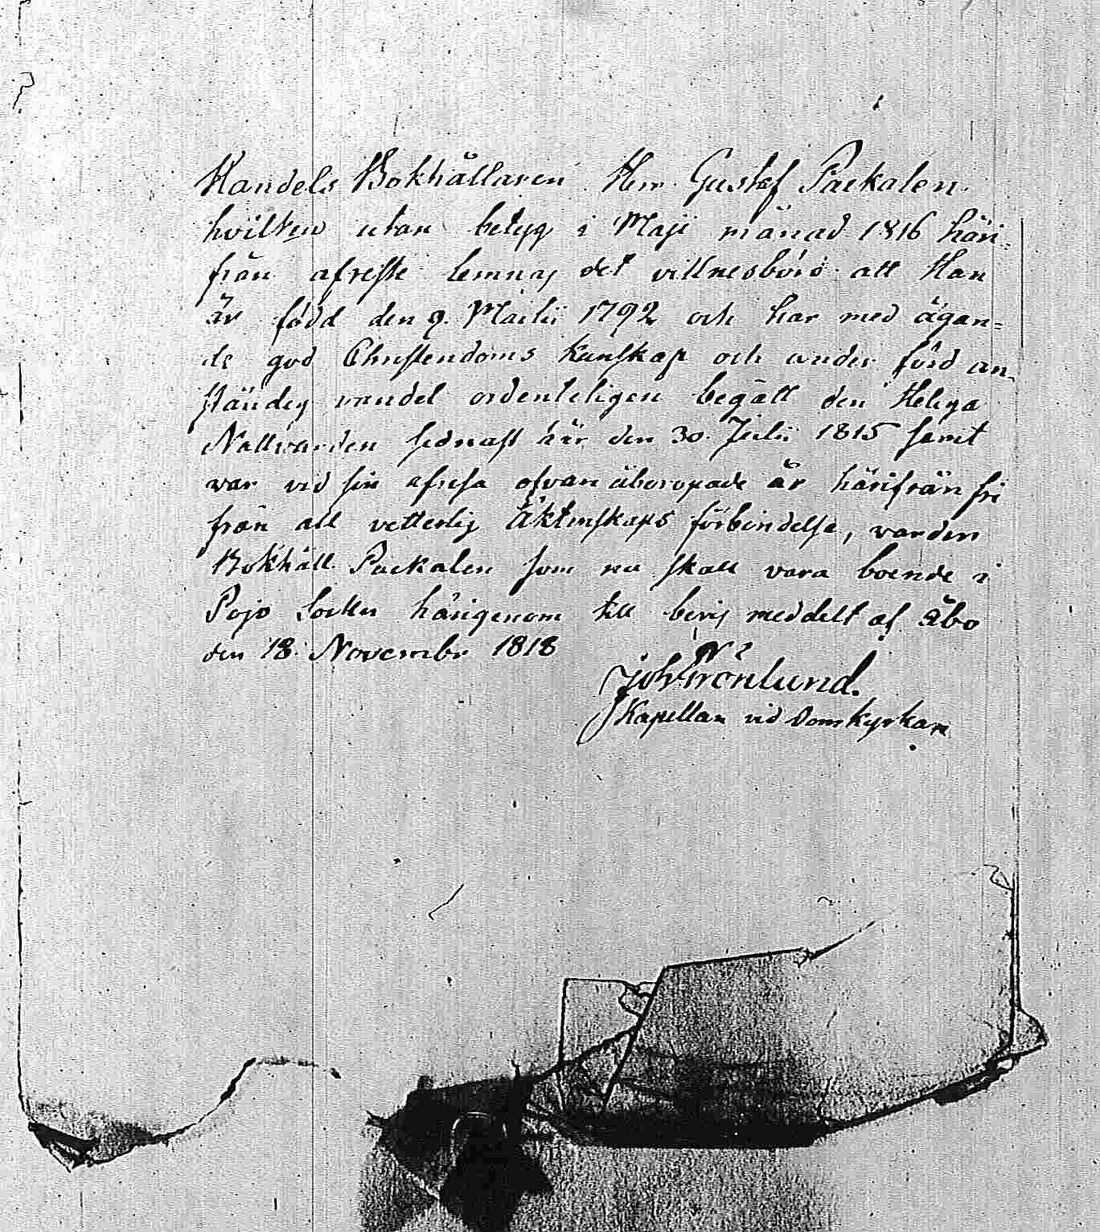 Handels Bokhållaren Herr Gustaf Packalen
hvilken utan betyg i Maji månad 1816 häri-
från afreste lemnas det vittnesbörd att Han
är född den 9. Martii 1792 och har med ägan-
de god Christendoms kunskap och under förd an-
ständig vandel ordenteligen begått den Heliga
Nattvarden sednast här den 30. Julii 1815 samt
war vid sin afresa ofvan åberopade år härifrån fri
från all vetterlig Äktenskaps förbindelse, varder
Bokhåll. Packalen som nu skall vara boende i
Pojo Socken härigenom till bevis meddelt af Åbo
den 18. Novembr 1818
Joh Grönlund.
Kapellan vid Domkyrkan